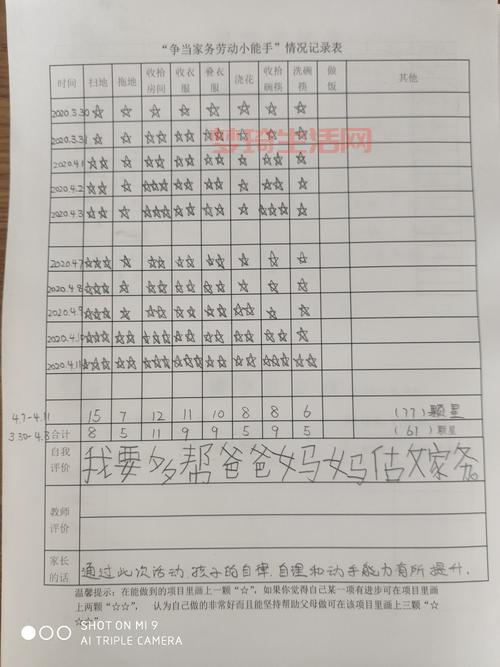 “争当家务劳动小能手”情况记录表
时间 扫地 拖地 收拾房间 收衣服 叠衣服 浇花 收拾碗筷 洗碗筷 做饭 其他
2020.3.30 ☆ ☆ ☆ ☆ ☆ ☆ ☆ ☆
2020.3.31 ☆ ☆ ☆☆ ☆☆ ☆☆ ☆ ☆ ☆
梦琦生活网
2020.4.1 ☆☆ ☆ ☆☆ ☆☆ ☆☆ ☆ ☆☆ ☆
2020.4.2 ☆☆ ☆ ☆☆☆ ☆☆ ☆☆ ☆ ☆☆ ☆
2020.4.3 ☆☆ ☆ ☆☆☆ ☆☆ ☆☆ ☆ ☆☆☆ ☆
2020.4.7 ☆☆☆ ☆ ☆☆ ☆☆ ☆☆ ☆ ☆ ☆
2020.4.8 ☆☆☆ ☆ ☆☆ ☆☆ ☆☆ ☆ ☆ ☆
2020.4.9 ☆☆☆ ☆ ☆☆ ☆☆ ☆☆ ☆☆ ☆ ☆
2020.4.10 ☆☆☆ ☆☆ ☆☆☆ ☆☆ ☆☆ ☆☆ ☆☆ ☆
2020.4.11 ☆☆☆ ☆☆ ☆☆☆ ☆☆☆ ☆☆ ☆☆ ☆☆☆ ☆☆
4.7-4.11 15 7 12 11 10 8 8 6 (77)颗星
3.30-4.3 合计 8 5 11 9 9 5 9 5 (61)颗星
自我评价 我要多帮爸爸妈妈做家务
教师评价
家长的话 通过此次活动,孩子的自律、自理和动手能力有所提升.
温馨提示：在能做到的项目里画上一颗“☆”，如果你觉得自己某一项有进步可在项目里画
上两颗“☆☆”， 认为自己做的非常好而且能坚持帮助父母做可在该项目里画上三颗“☆
☆☆”
SHOT ON MI 9
AI TRIPLE CAMERA